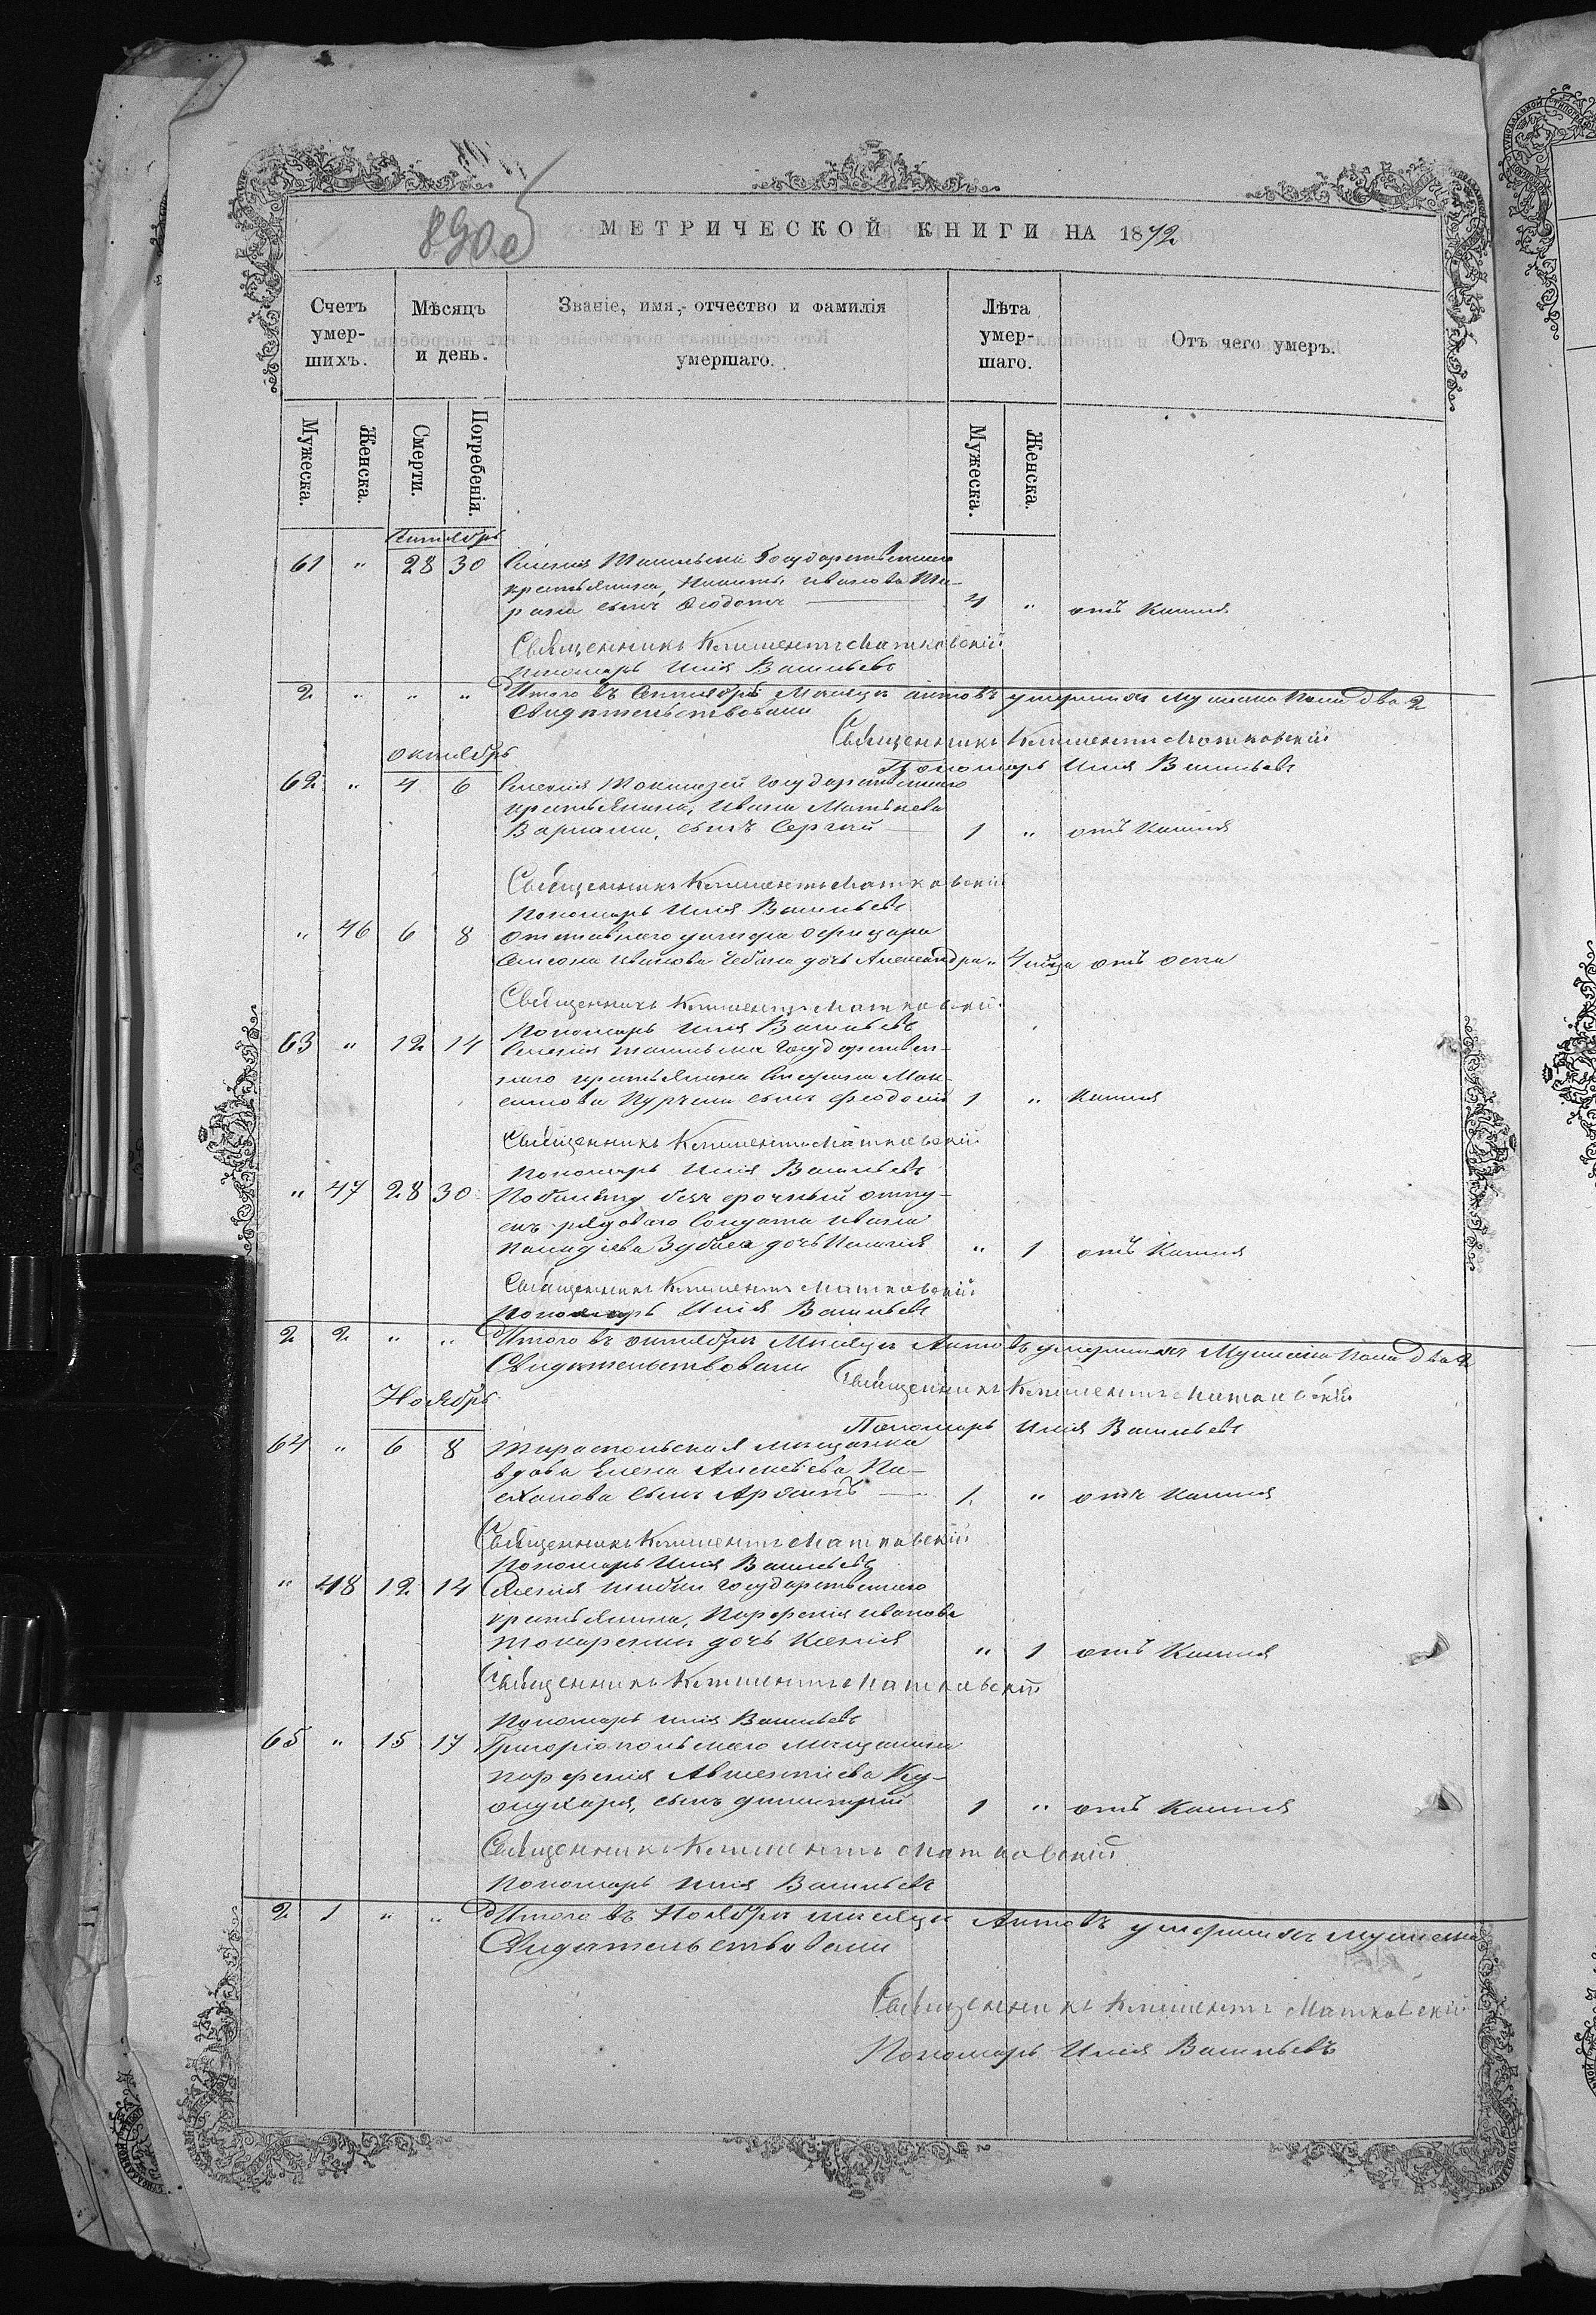 890 об
МЕТРИЧЕСКОЙ КНИГИ НА 1872
Счетъ умер-шихъ.
Мѣсяцъ и день.
Званіе, имя, отчество и фамилія умершаго.
Лѣта умер-шаго.
Отъ чего умеръ.
Мужеска.
Женска.
Смерти.
Погребенія.
Мужеска.
Женска.
61 " 28 30 Селенія Государственнаго
крестьянина, Никиты Иванова
сынъ Ѳеодотъ 4 " отъ Кашля
Священникъ Климентъ Матковскій
Пономарь Илія Васильевъ
2 " " " Итого въ Сентябрѣ Мѣсяцѣ умершихъ Мужеска Пола два 2
Свидѣтельствовали
Священникъ Климентъ Матковскій
Октябрь
Пономарь Илія Васильевъ
62 " 4 6 Селенія Токмазей Государственнаго
крестьянина, Ивана Матвѣева
Варлама, сынъ Сергій 1 " отъ Кашля
Священникъ Климентъ Матковскій
Пономарь Илія Васильевъ
" 46 6 8 Отставнаго унтеръ офицера
Иванова Чебана дочь Александра " 4 мѣся отъ оспа
Священникъ Климентъ Матковскій
Пономарь Илія Васильевъ
63 " 12 14 Селенія Государствен-
наго крестьянина Мак-
симова сынъ Ѳеодосій 1 " Кашля
Священникъ Климентъ Матковскій
Пономарь Илія Васильевъ
" 47 28 30 По билету безъ срочный отпу-
скъ рядоваго Солдата Ивана
дочь Пелагія " 1 отъ Кашля
Священникъ Климентъ Матковскій
Пономарь Илія Васильевъ
2 2 " " Итого въ октябрѣ Мѣсяцѣ умершихъ Мужеска Пола два 2
Свидѣтельствовали
Священникъ Климентъ Матковскій
Ноябрь
Пономарь Илія Васильевъ
64 " 6 8 Тираспольская мѣщанка
вдова Елена Алексѣева Па-
сынъ 1 " отъ Кашля
Священникъ Климентъ Матковскій
Пономарь Илія Васильевъ
" 48 12 14 Селенія Государственнаго
крестьянина, Парфенія Иванова
дочь Ксенія " 1 отъ Кашля
Священникъ Климентъ Матковскій
Пономарь Илія Васильевъ
65 " 15 17 Григоріопольскаго Мѣщанина
Парфенія Авксентіева
сынъ Димитрій 1 " отъ Кашля
Священникъ Климентъ Матковскій
Пономарь Илія Васильевъ
2 1 " " Итого въ Ноябрѣ мѣсяцѣ умершихъ мужеска
Свидѣтельствовали
Священникъ Климентъ Матковскій
Пономарь Илія Васильевъ